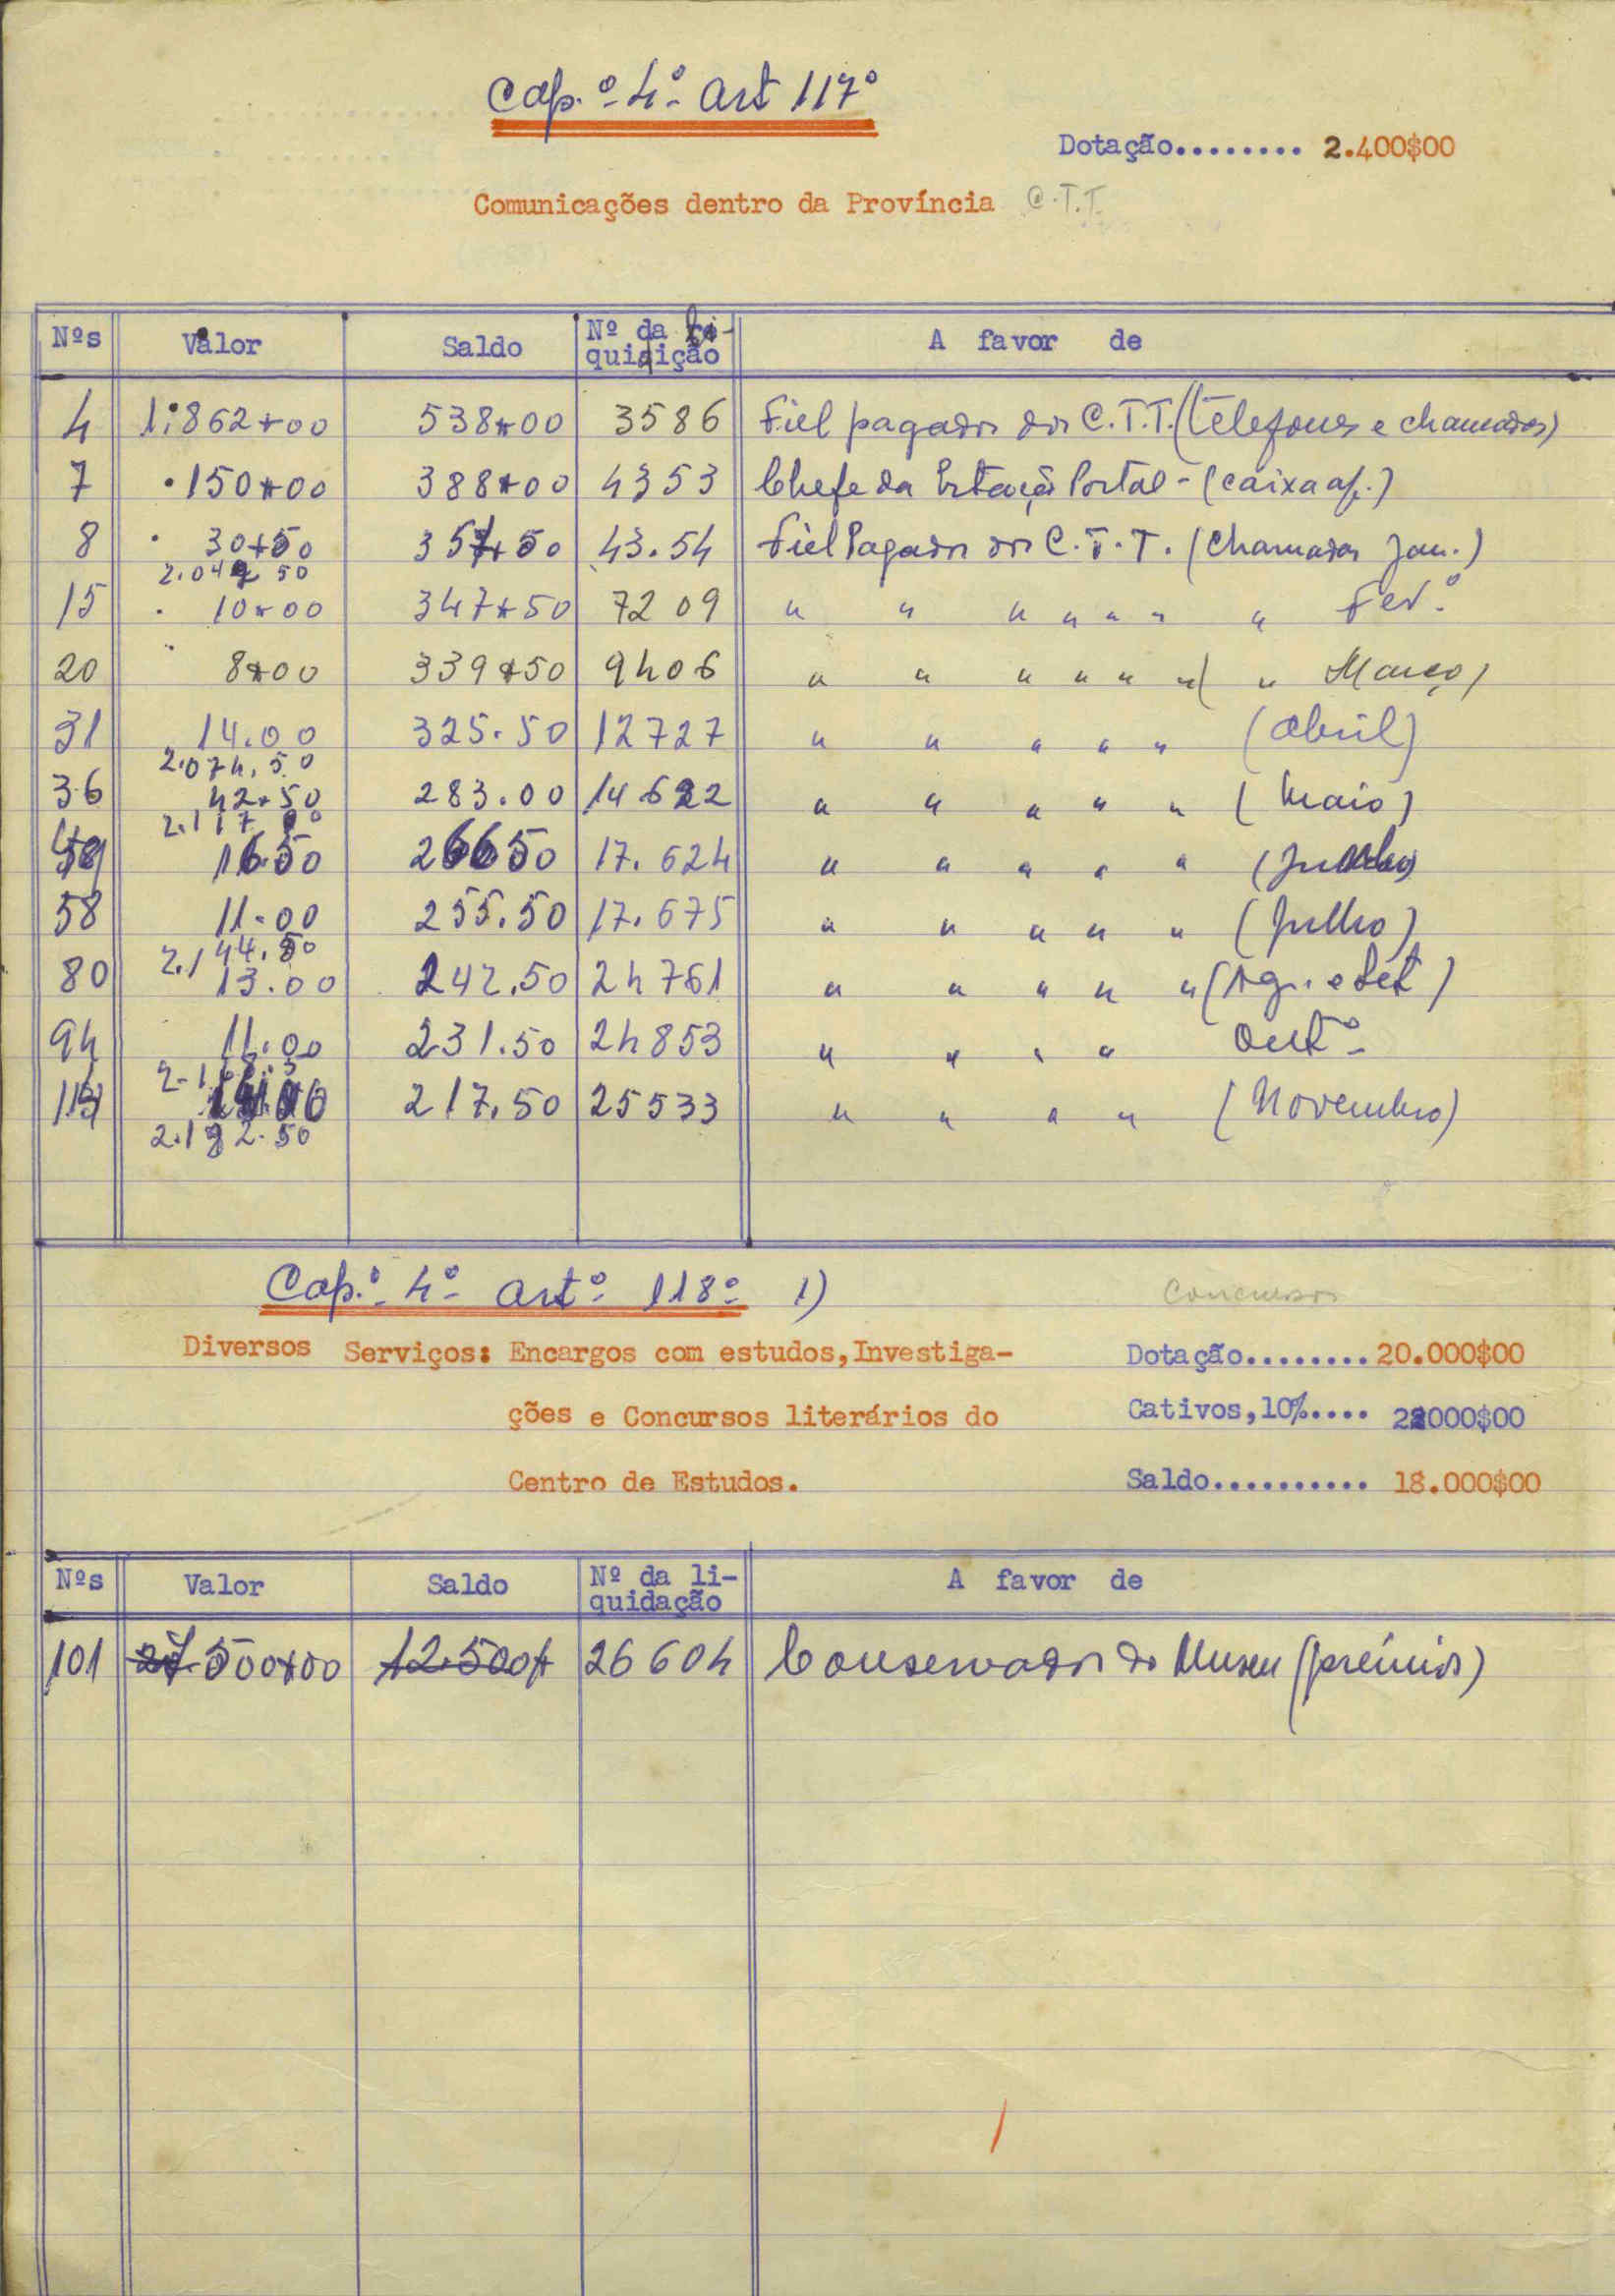 Cap.º 4º Art 117º
Dotação........ 2.400$00
Comunicações dentro da Província C.T.T.
Nºs Valor Saldo Nº da li-quidição A favor de
4 1.862$00 538$00 3586 Fiel pagador dos C.T.T. (Telefones e chamadas)
7 150$00 388$00 4353 Chefe da Estação Postal - (caixa ap.)
8 30$50 357$50 43.54 Fiel Pagador dos C.T.T. (Chamadas Jan.)
2.042 50
15 10$00 347$50 7209 " " " " " " " Fev.º
20 8$00 339$50 9406 " " " " " " ( " Março)
31 14.00 325.50 12727 " " " " " (Abril)
2.074.50
36 42.50 283.00 14622 " " " " " (Maio)
2.117 00
49 16.50 266 50 17.624 " " " " " (Junho)
58 11.00 255.50 17.675 " " " " " (Julho)
2.144.50
80 13.00 242.50 24761 " " " " " (Ag. e Set)
94 11.00 231.50 24853 " " " " Outº
14.00 217.50 25533 " " " " (Novembro)
2.182.50
Cap.º 4º Artº 118º 1)
Concursos
Diversos Serviços: Encargos com estudos,Investiga-
Dotação........20.000$00
ções e Concursos literários do
Cativos,10%.... 2.000$00
Centro de Estudos.
Saldo........... 18.000$00
Nºs Valor Saldo Nº da li-quidação A favor de
101 500$00 12.500$ 26604 Conservador do Museu (prémios)